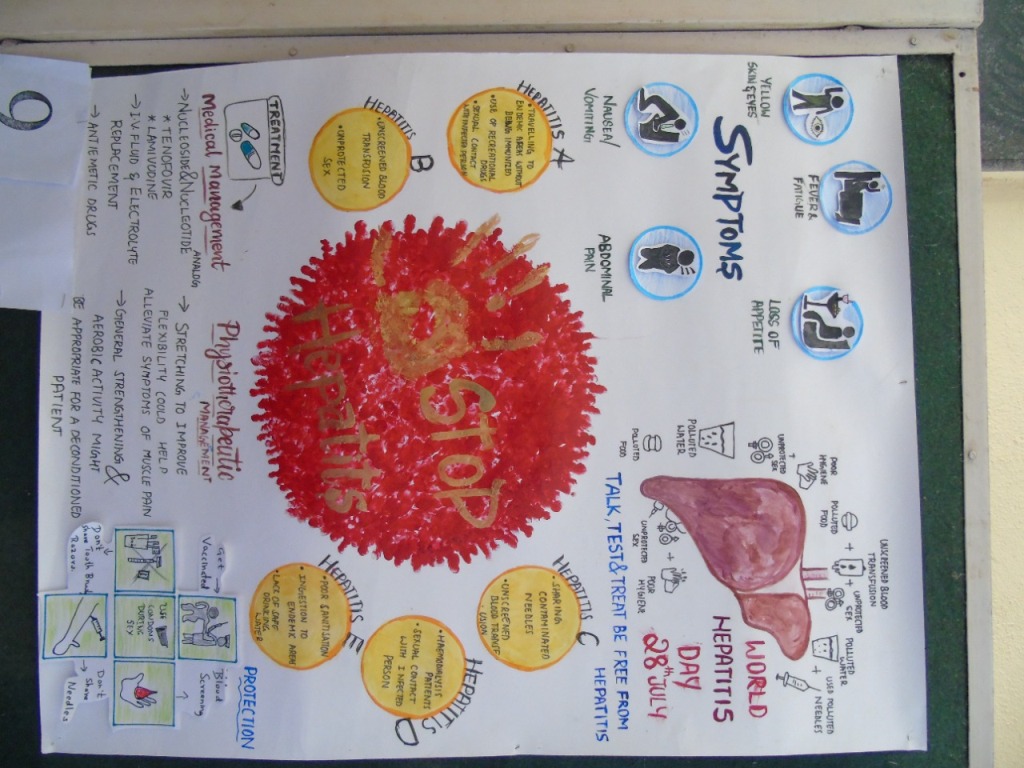 WORLD
HEPATITIS
DAY
28th JULY
TALK, TEST & TREAT BE FREE FROM HEPATITIS
UNSCREENED BLOOD
TRANSFUSION
POLLUTED
FOOD
+
+
UNPROTECTED
SEX
POOR
HYGIENE
UNPROTECTED
SEX
POLLUTED
WATER
POLLUTED
FOOD
UNPROTECTED
SEX
+
POOR
HYGIENE
POLLUTED
WATER
+
USED POLLUTED
NEEDLES
SYMPTOMS
YELLOW
SKIN & EYES
FEVER &
FATIGUE
LOSS OF
APPETITE
NAUSEA/
VOMITING
ABDOMINAL
PAIN
HEPATITIS A
• TRAVELLING TO
ENDEMIC AREA WITHOUT
BEING IMMUNIZED
• USE OF RECREATIONAL
DRUGS
• SEXUAL CONTACT
WITH INFECTED PERSON
HEPATITIS B
• UNSCREENED BLOOD
TRANSFUSION
• UNPROTECTED
SEX
STOP
Hepatitis
HEPATITIS C
• SHARING
CONTAMINATED
NEEDLES
• UNSCREENED
BLOOD TRANSF
USION
HEPATITIS D
• HAEMODIALYSIS
PATIENTS
• SEXUAL CONTACT
WITH INFECTED
PERSON
HEPATITIS E
• POOR SANITATION
• INGESTION TO
ENDEMIC AREA
• LACK OF SAFE
DRINKING
WATER
TREATMENT
Medical Management
→ NUCLEOSIDE & NUCLEOTIDE ANALOG
* TENOFOVIR
* LAMIVUDINE
→ I.V FLUID & ELECTROLYTE
REPLACEMENT
→ ANTIEMETIC DRUGS
Physiotherapeutic
MANAGEMENT
→ STRETCHING TO IMPROVE
FLEXIBILITY COULD HELP
ALLEVIATE SYMPTOMS OF MUSCLE PAIN
→ GENERAL STRENGTHENING &
AEROBIC ACTIVITY MIGHT
BE APPROPRIATE FOR A DECONDITIONED
PATIENT
PROTECTION
Get →
Vaccinated
Blood
Screening
USE
CONDOMS
DURING
SEX
Don't
Share Tooth Brush
Razors
→ Don't
Share
Needles
9